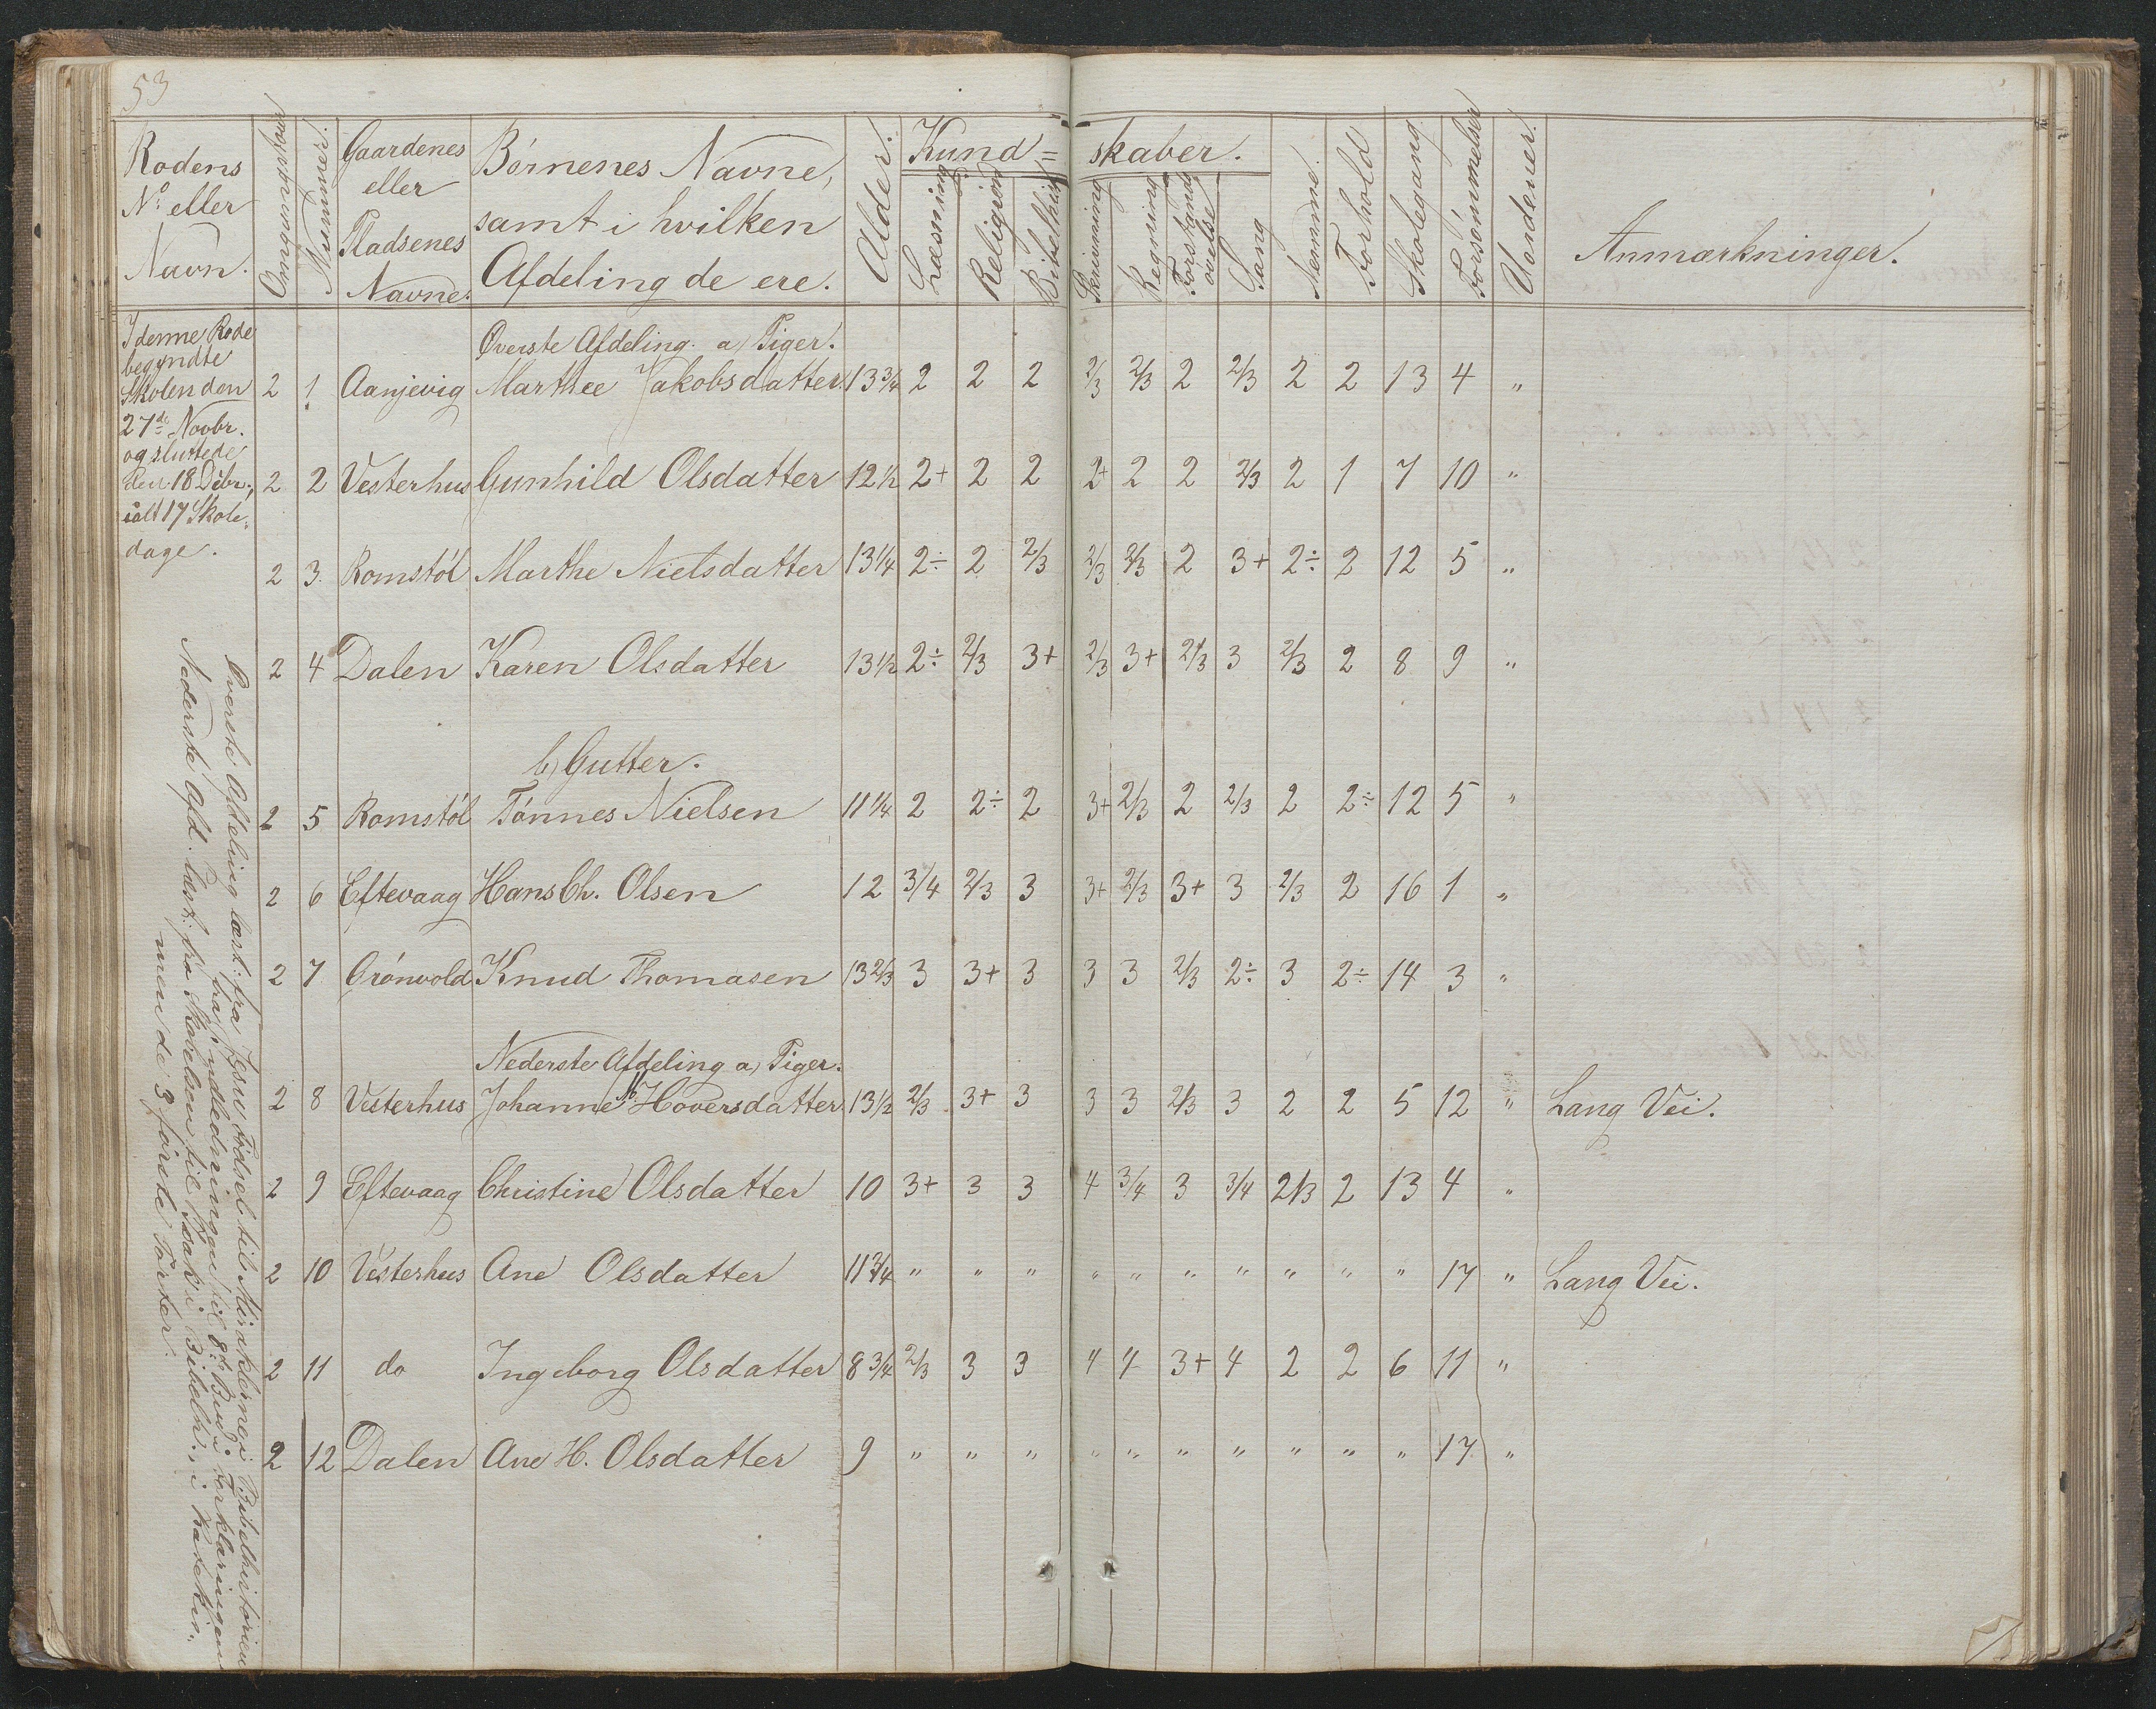 53
Rodens No. eller Navn. Nummer. Gaardenes eller Pladsenes Navne. Børnenes Navne, samt i hvilken Afdeling de ere. Alder. Kund= skaber. Læsning Religion Bibelhist. Skrivning Regning Forstands øvelse Sang Nemme. Forhold Skolegang Forsømmelser Uordener. Anmærkninger.
I denne Rode
begyndte
Skolen den
27de Novbr.
og sluttede
den 18 Dcbr.,
ialt 17 Skole,
dage.
Øverste Afdeling. a, Piger.
2 1 Aanjevig Marthee Jakobsdatter 13 3/4 2 2 2 2/3 2/3 2 2/3 2 2 13 4 "
2 2 Vesterhus Gunhild Olsdatter 12 1/2 2+ 2 2 2+ 2 2 2/3 2 1 7 10 "
2 3. Romstøl Marthe Nielsdatter 13 1/4 2÷ 2 2/3 2/3 2/3 2 3+ 2÷ 2 12 5 "
2 4 Dalen Karen Olsdatter 13 1/2 2÷ 2/3 3+ 2/3 3+ 2/3 3 2/3 2 8 9 "
b, Gutter.
2 5 Romstøl Tønnes Nielsen 11 1/4 2 2÷ 2 3+ 2/3 2 2/3 2 2÷ 12 5 "
2 6 Eftevaag Hans Ch. Olsen 12 3/4 2/3 3 3+ 2/3 3+ 3 2/3 2 16 1 "
2 7 Grønvold Knud Thomasen 13 2/3 3 3+ 3 3 3 2/3 2÷ 3 2÷ 14 3 "
Nederste Afdeling a, Piger.
2 8 Vesterhus Johanne M. Hoversdatter 13 1/2 2/3 3+ 3 3 3 2/3 3 2 2 5 12 " Lang Vei.
2 9 Eftevaag Christine Olsdatter 10 3+ 3 3 4 3/4 3 3/4 2/3 2 13 4 "
2 10 Vesterhus Ane Olsdatter 11 3/4 " " " " " " " " " " 17 " Lang Vei.
2 11 do Ingeborg Olsdatter 8 3/4 2/3 3 3 4 4 3+ 4 2 2 6 11 "
2 12 Dalen Ane H. Olsdatter 9 " " " " " " " " " " 17 "
Øverste Afdeling læst: fra Jesu Fødsel til Miraklerne i Bibelhistorien
fra Indledningen til 8de Bud i Forklaringen
Nederste Afd. læst: fra Skabelsen til Isaak i Bibelh., i Katekis.
men de 3 første Parter.